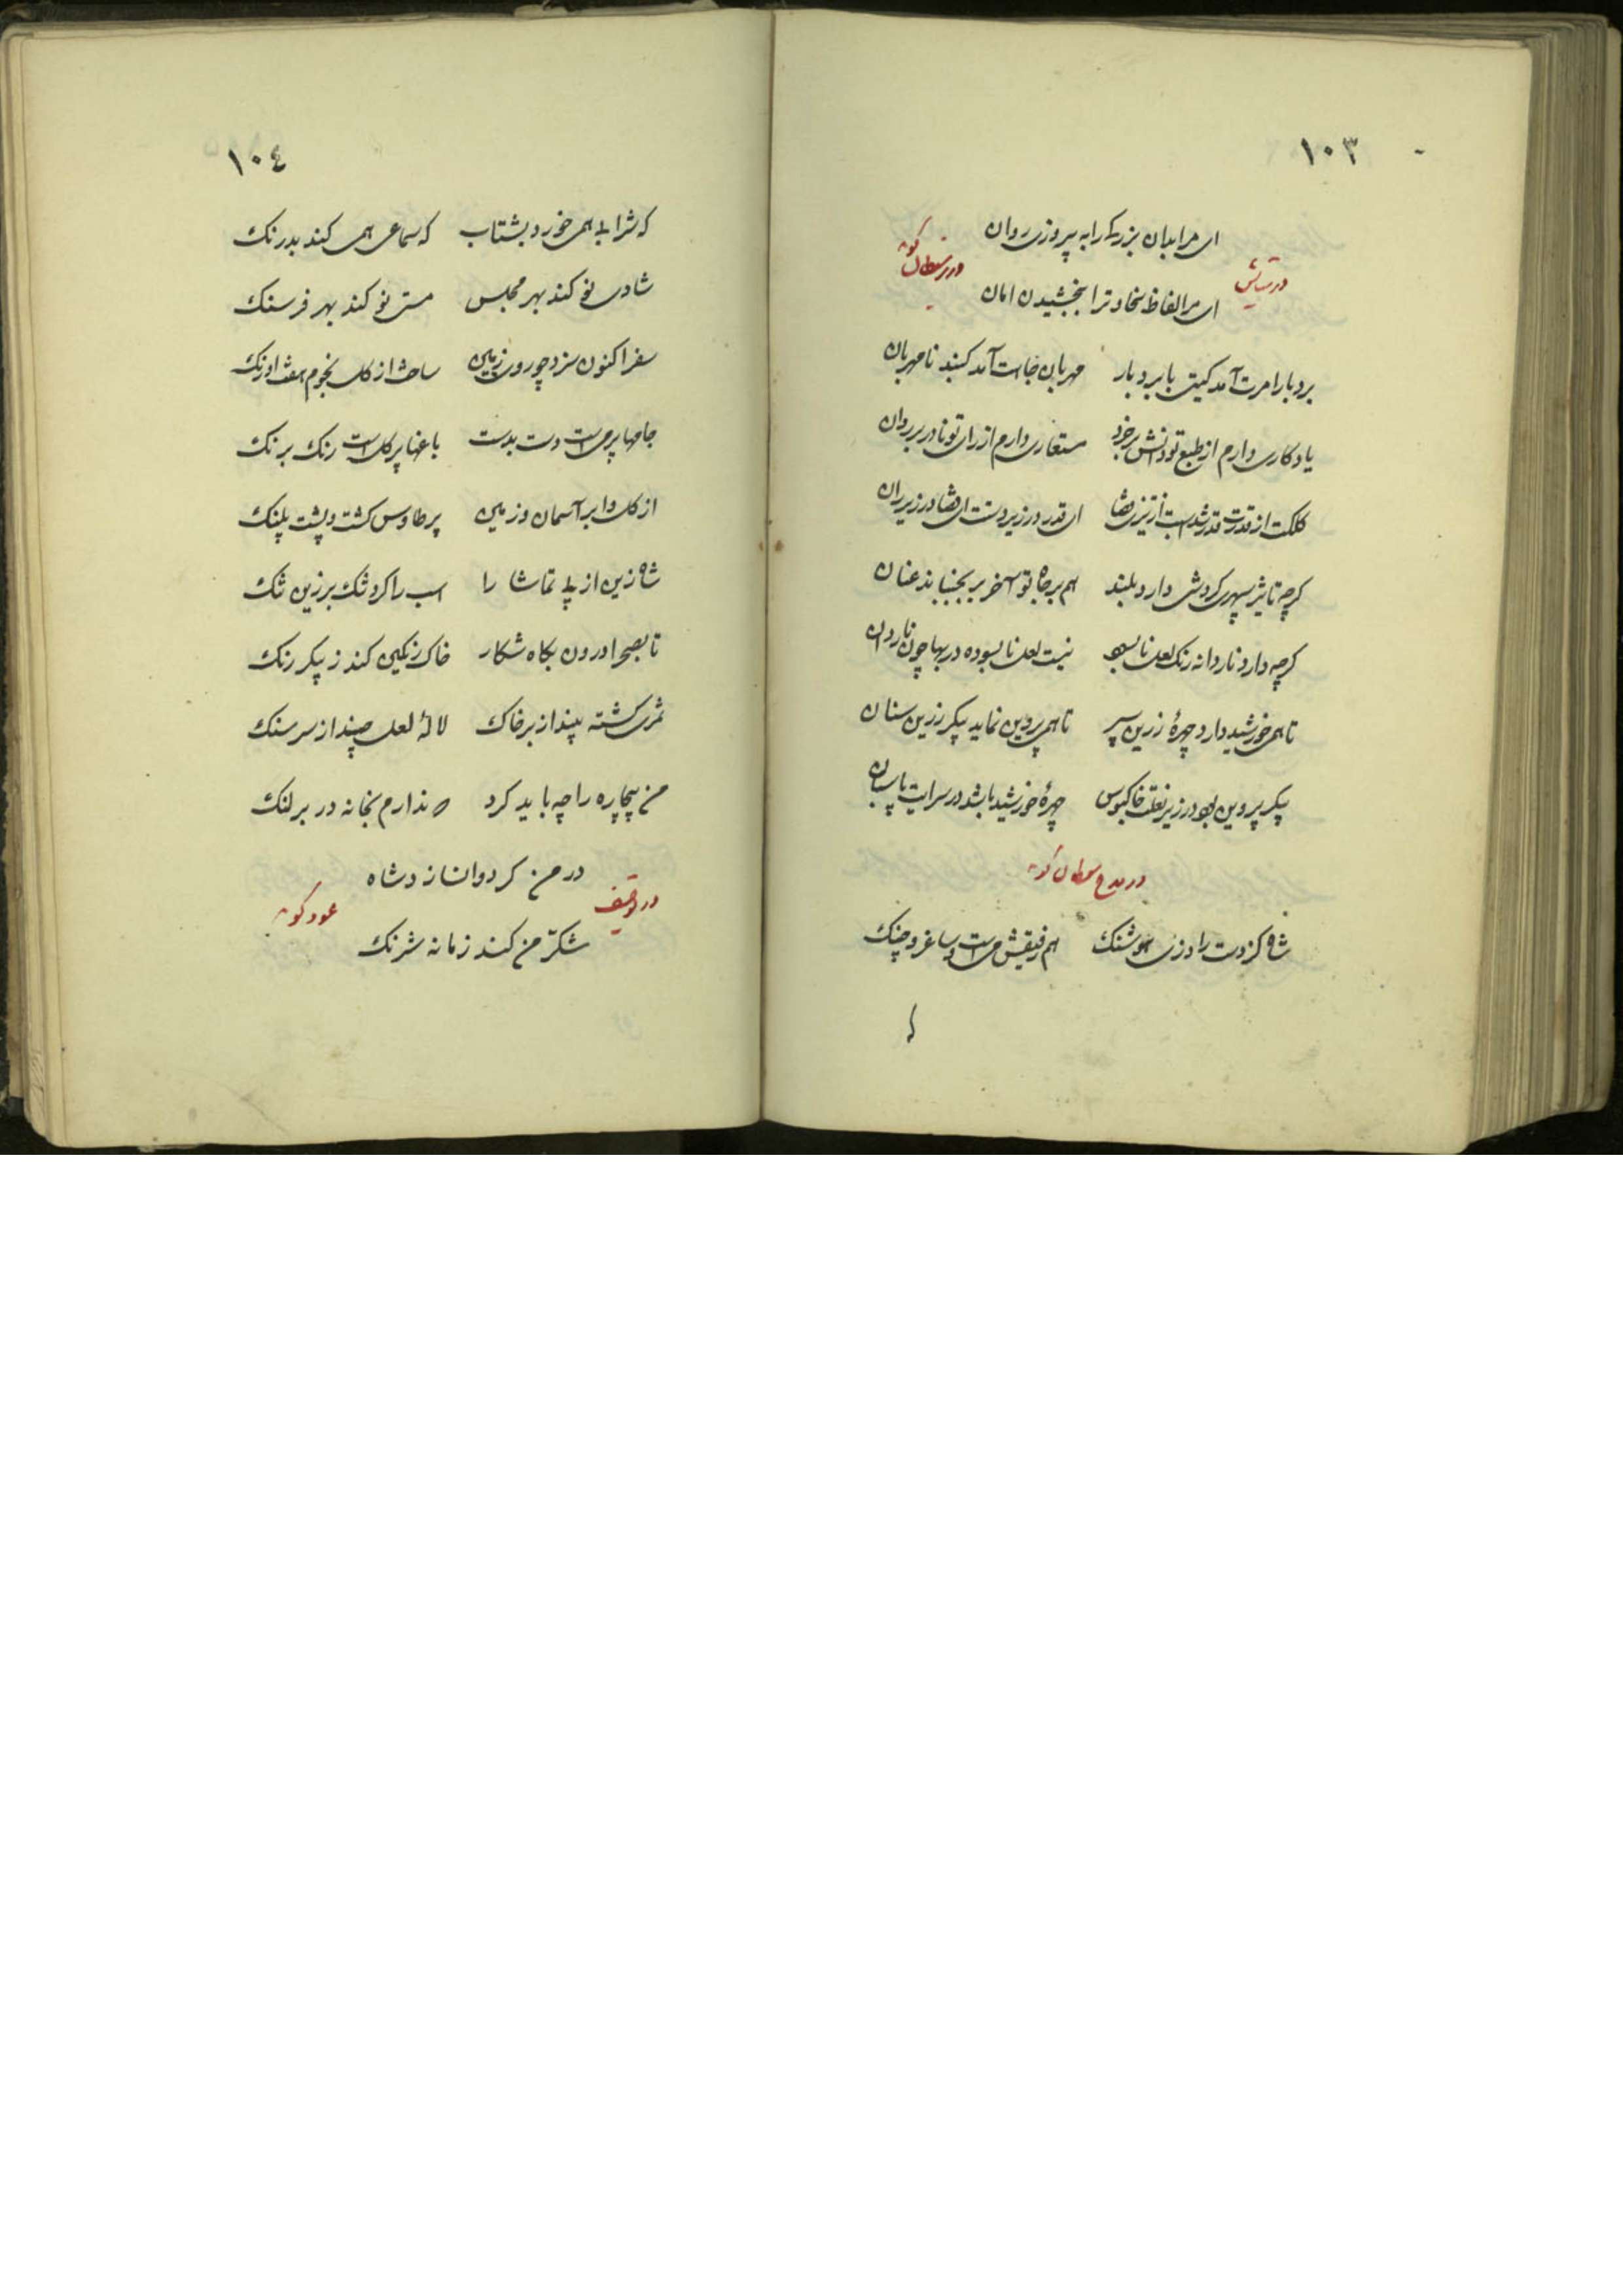 ١٠٣
ای مر ابدان بزرگی را به پیروزی روان
در ستایش
ای مر الفاظ سخاوت را ببخشیدن امان
بردبار امرت آمد کیتی بابردبار مهربان جاهت آمد کنبد نامهربان
یادکاری دارم از طبع تو دانش بر خرد مستعاری دارم از رای تو نادر بر روان
کلکت از قدرت قدر شدست از تیزی قضا ای قدر در زیر دست ای قضا در زیر ران
کرچه تاثیر سپهری کردش دارد بلند هم بر جاه تو آخر بر بجنباند عنان
کرچه دارد ناردانه رنک لعل نابسود نیست لعل نابسوده در بها چون ناردان
تا همی خورشید دارد چهرهٔ زرین سپر تا همی پروین نماید پیکر زرین سنان
پیکر پروین بود در زیر نعلت خاکبوس چهرهٔ خورشید باشد در سرایت پاسبان
در مدح سلطان کوید
شاه کزوست رادی هوشنک هم رفیقش می است و ساغر و چنک
١٠٤
که شرابی همی خورد بشتاب که سماعی همی کند بدرنک
شادی نو کند بهر مجلس مستی نو کند بهر فرسنک
سفر اکنون سزد چو روی زمین ساخت از کل نجوم هفت اورنک
جامها پر می است دست بدست باغها پر کل است رنک برنک
از کل و ابر آسمان و زمین پر طاوس کشت و پشت پلنک
شاه زین از پی تماشا را اسب را کرد تنک بر زین تنک
تا بصحرا درون بکاه شکار خاک رنکین کند ز پیکر رنک
ثمری کشته بیند از بر خاک لالهٔ لعل چیند از سر سنک
من بیچاره را چه باید کرد که ندارم بخانه در بر لنک
در من کر دوا نسازد شاه
در توصیف خود کوید
شکر من کند زمانه شرنک